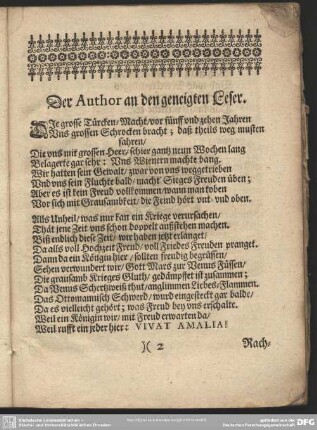 Der Author an den geneigten Leser.
DIe grosse Türcken/Macht/vor fünff vnd zehen Jahren
Vns grossen Schrocken bracht; daß theils weg musten
fahren/
Die vns mit grossen Heer/ schier gantz neun Wochen lang
Belagerte gar sehr: Vns Wienern machte bang.
Wir hatten sein Gewalt/ zwar von vns weggetrieben
Vnd vns sein Fluchte bald/ macht Sieges Freuden üben;
Aber es ist kein Freud vollkommen/ wann man toben
Vor sich mit Grausambkeit/ die Feind hört vnt- vnd oben.
Alls Unheil/ was nur kan ein Kriege verursachen/
Thät jene Zeit vns schon doppelt außstehen machen.
Biß endlich diese Zeit/ wir haben jetzt erlanget/
Da alls voll Hochzeit Freud/ voll Friedes Freuden pranget.
Dann da ein Königin hier/ sollten freudig begrüssen/
Sehen verwundert wir/ Gott Mars zur Venus Füssen/
Die grausamb Krieges Gluth/ gedämpffet ist zusammen;
Da Venus Schertzweiß thut/ anglimmen Liebes/Flammen.
Das Ottomannisch Schwerd/ wurd eingesteckt gar balde/
Da es vielleicht gehört; was Freud bey vns erschalte.
Weil ein Königin wir/ mit Freud erwarten da/
Weil rufft ein jeder hier: VIVAT AMALIA!
)( 2
Rach-